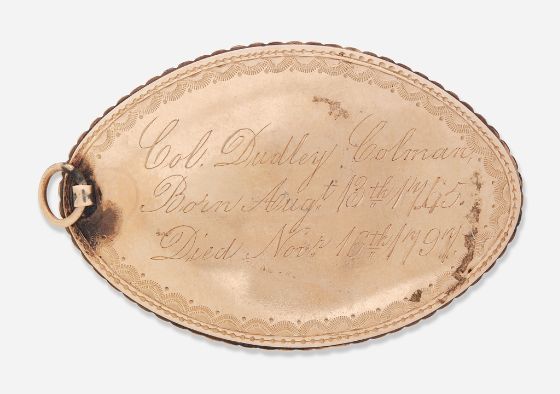 Col. Dudley Colman,
Born Augt. 13th 1745.
Died Novr. 16th 1797